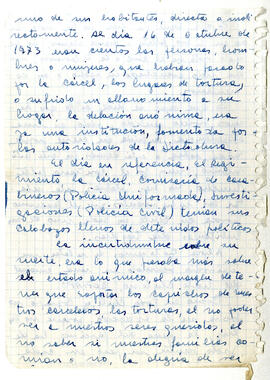 uno de sus habitantes, directa o indi
rectamente. ese dia 16 de Octubre de
1973 eran cientos las personas, hom
bres o mujeres, que habian pasado
por la cárcel, los lugares de tortura,
o sufrido un allanamiento a su
hogar, la delación anónima, era
ya una institución, fomentada por
las autoridades de la Dictadura.
El dia en referencia, el Regi-
miento la Cárcel, comisaria de cara
bineros (Policia Uniformada), investi
gaciones (Policia Civil) tenian sus
calabozos llenos de detenidos politicos
la incertidumbre sobre su
suerte, era lo que pesaba más sobre
el estado animico, al margen de te-
ner que soportar los caprichos de nues
tros carceleros, las torturas, el no poder
ver a nuestros seres queridos, el
no saber si nuestras familias co
mian o no, la alegria de ser